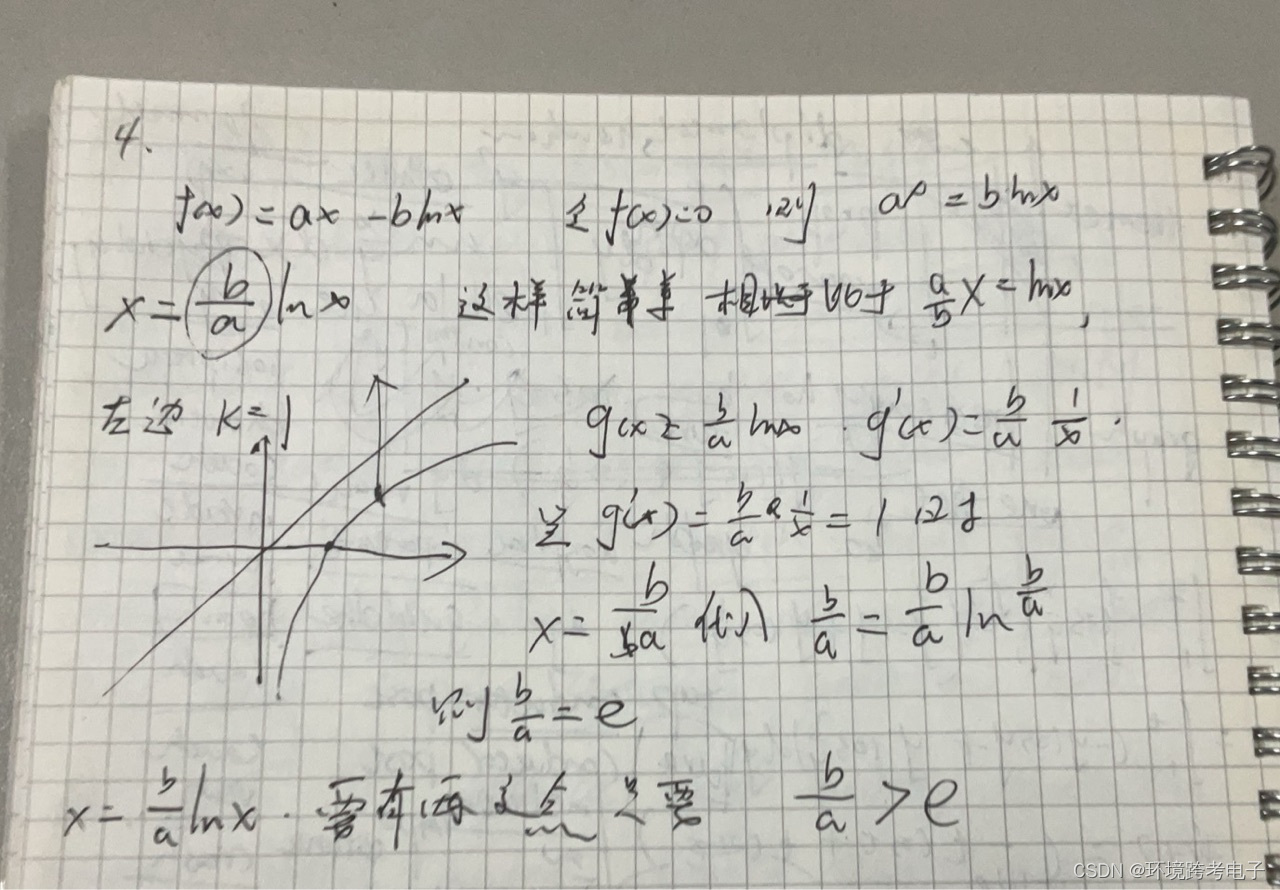 4.
f(x) = ax - b ln x 令 f(x)=0 则 ax = b ln x
x = b/a ln x 这样简单 相比于 a/b x = ln x,
左边 K=1
g(x) = b/a ln x . g'(x) = b/a 1/x .
令 g'(x) = b/a · 1/x = 1 得
x = b/a 代入 b/a = b/a ln b/a
则 b/a = e
x = b/a ln x . 要有两交点 只要 b/a > e
CSDN @环境跨考电子